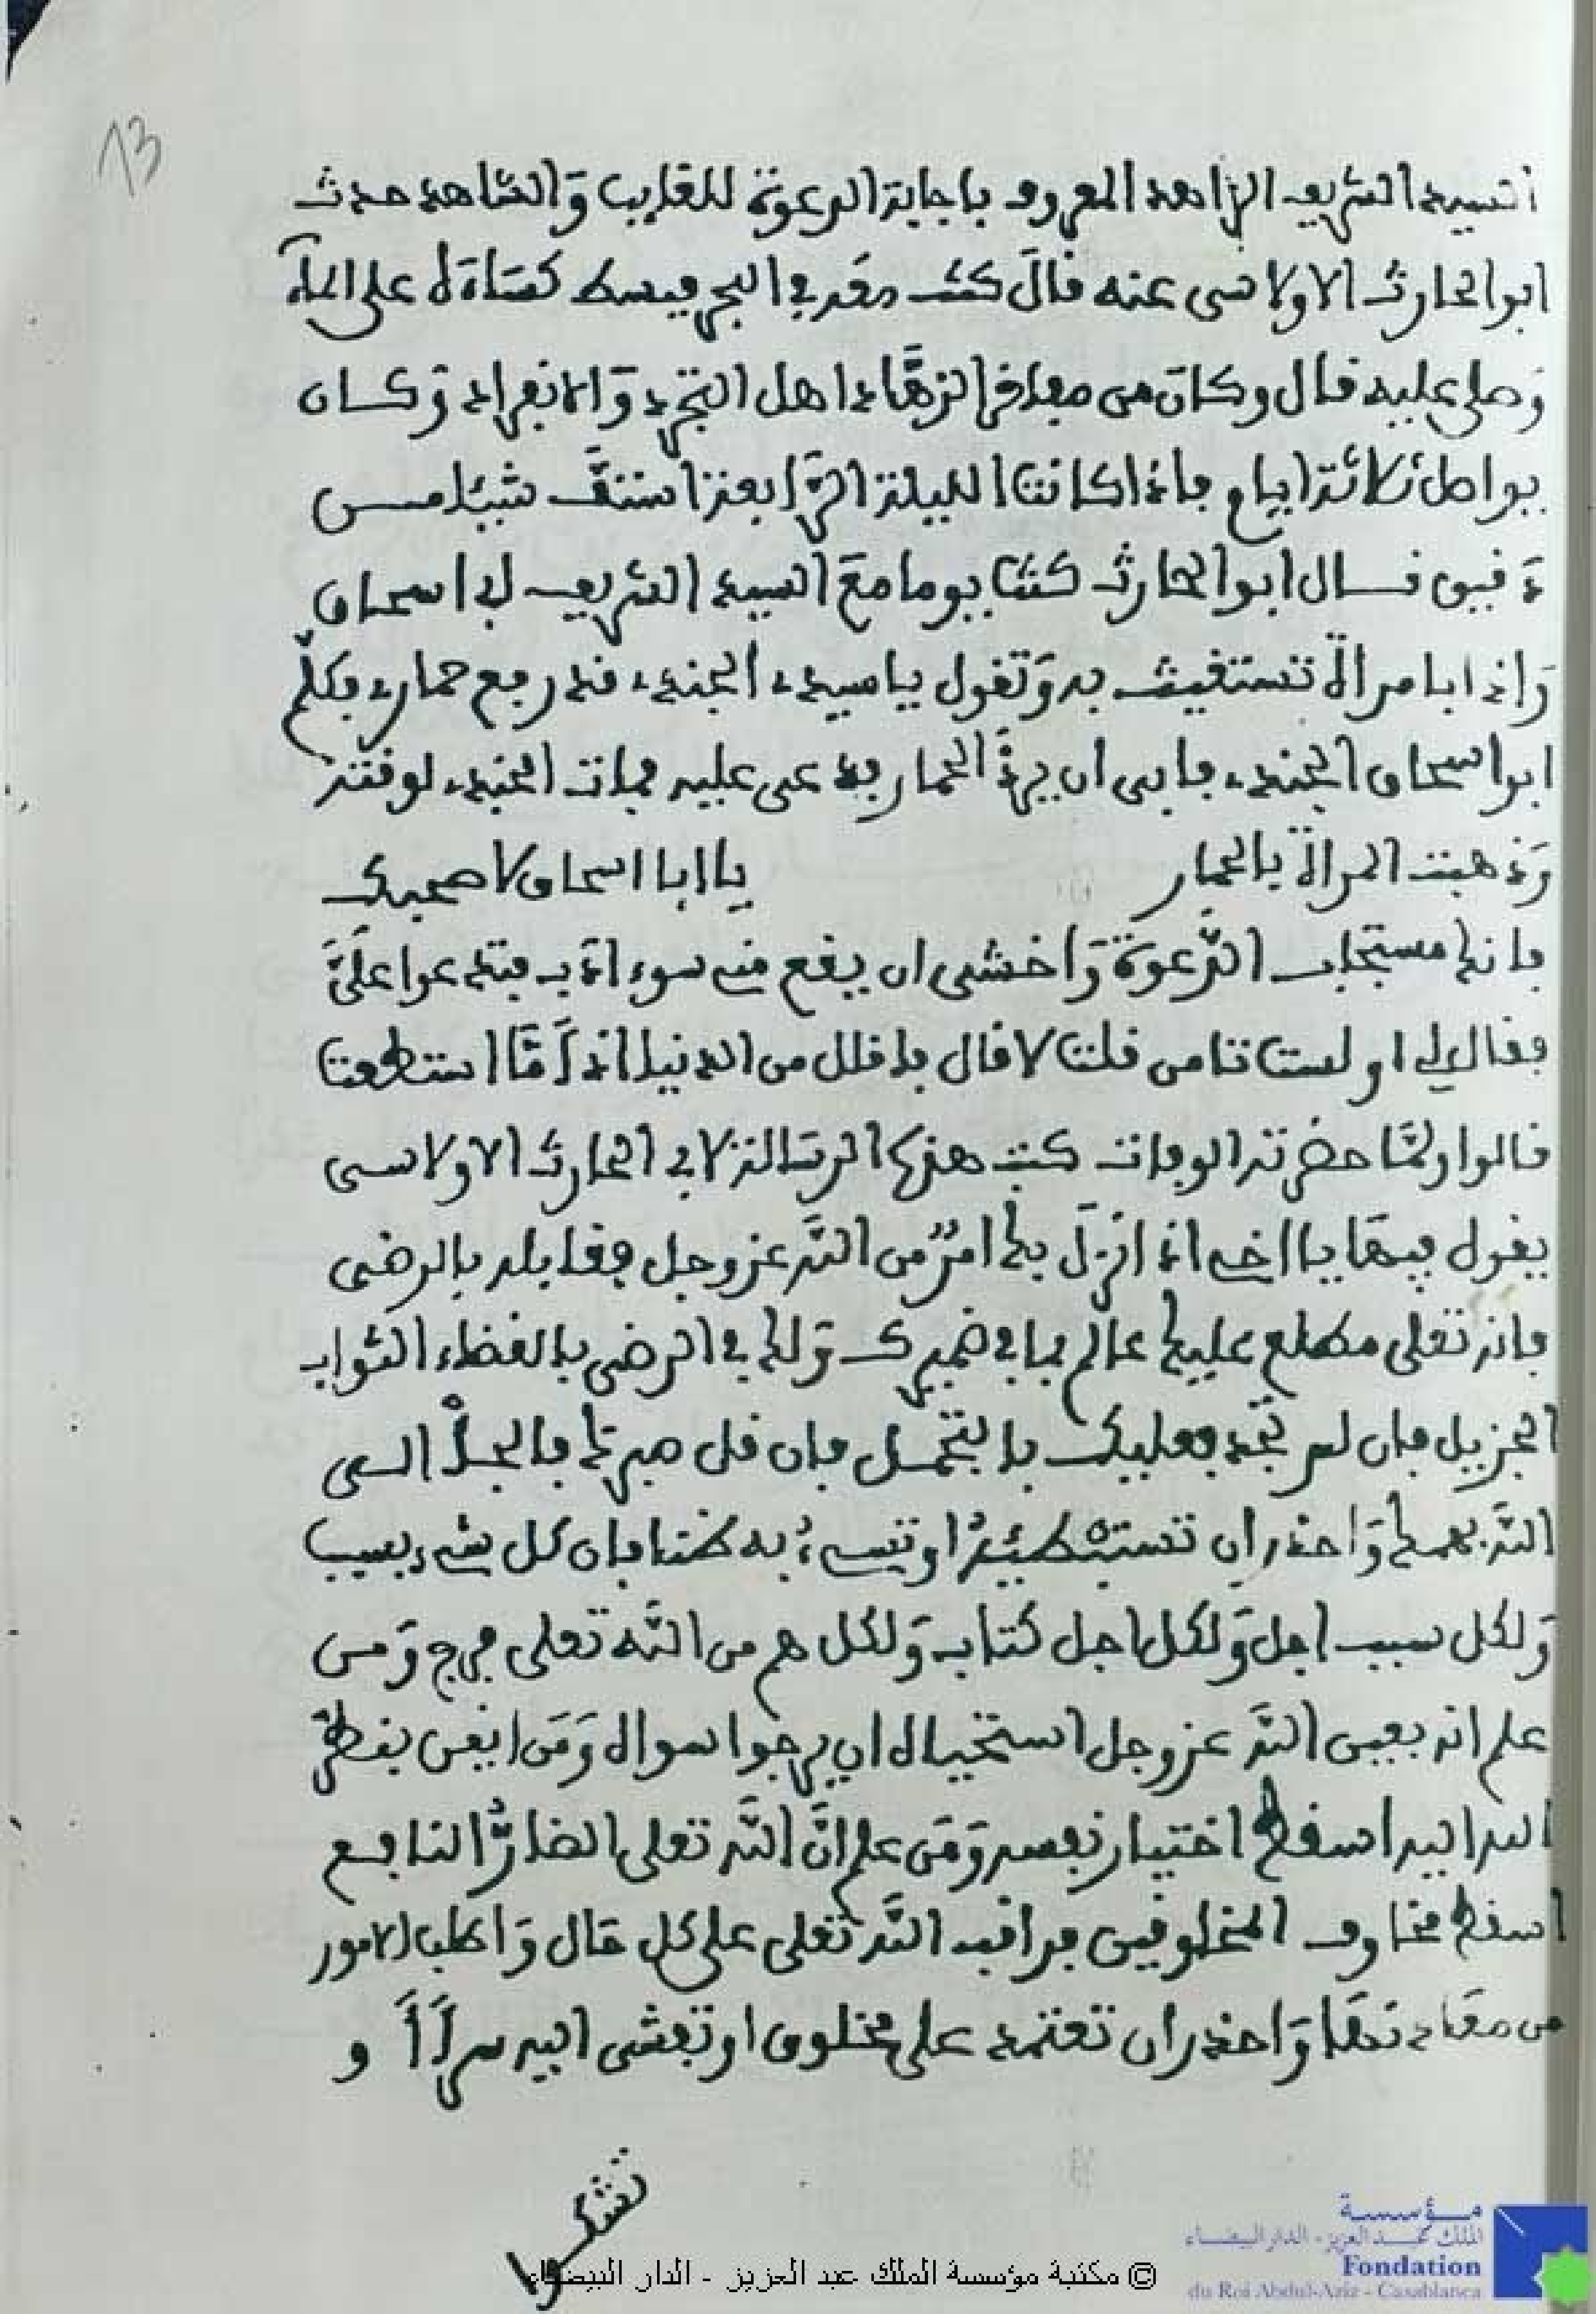 13
السيد الشريف الزاهد المعروف باجابة الدعوة للغايب وَالشاهد حدث
ابو الحارث الاولاسى عنه قال كنت معه في البحر فبسط كسَاءَه على المآء
وَصلى عليه قال وكان من معارف الزهَّاد اهل التجرد وَالانفراد وَكان
يواصل ثلاثة ايام فاذا كانت الليلة الرَّابعة استفَّ شيئا من
دَقيق قال ابو الحارث كنت يوما معَ السيد الشريف ابي اسحاق
وَاذا بامرأة تستغيث به وَتقول يا سيدي الجندي قد رفع حماري فكلّم
ابو اسحاق الجندي فابى ان يردَّ الحمار فدعى عليه فمات الجندي لوقته
وَذهبت المرأة بالحمار يا ابا اسحاق لا اصحبك
فانك مستجاب الدَّعوة وَاخشى ان يقع مني سوء ادَب فتدعوا علَيَّ
فقال لي او لست تامن قلت لا قال فاقلل من الدنيا اذًا مَّا استطعت
قالوا ولمَّا حضرته الوفات كتب هذه الرسَالة لابي الحارث الاولاسى
يقول فيهَا يا اخي اذا نزلَ بك امرٌ من اللَّه عز وجل فقابله بالرضى
فانه تعلى مطلع عليك عالم بما في ضميرك وَلك في الرضى بالقضاء الثواب
الجزيل فان لم تجد فعليك بالتحمل فان قل صبرك فالجأْ الى
اللَّه بهمك وَاحذر ان تستبطئه او تسيء به ظنا فان كل شيء بسبب
وَلكل سبب اجل وَلكل اجل كتاب وَلكل هم من اللَّه تعلى فرج وَمن
علم انه بعين اللَّه عز وجل استحيى له ان يرجوا سواه وَمَن ايقن بنظر
الله اليه اسقط اختيار نفسه وَمَن علم انَّ اللَّه تعلى الضارُّ النافع
اسقط مخاوف المخلوقين فراقب اللَّه تعلى على كل حَال وَاطلب الامور
من معَادنهَا وَاحذر ان تعتمد على مخلوق او تفشى اليه سرًّا أَ و
تشكوا
© مكتبة مؤسسة الملك عبد العزيز - الدار البيضاء
مؤسسة
الملك عبد العزيز - الدار البيضاء
Fondation
du Roi Abdul-Aziz - Casablanca